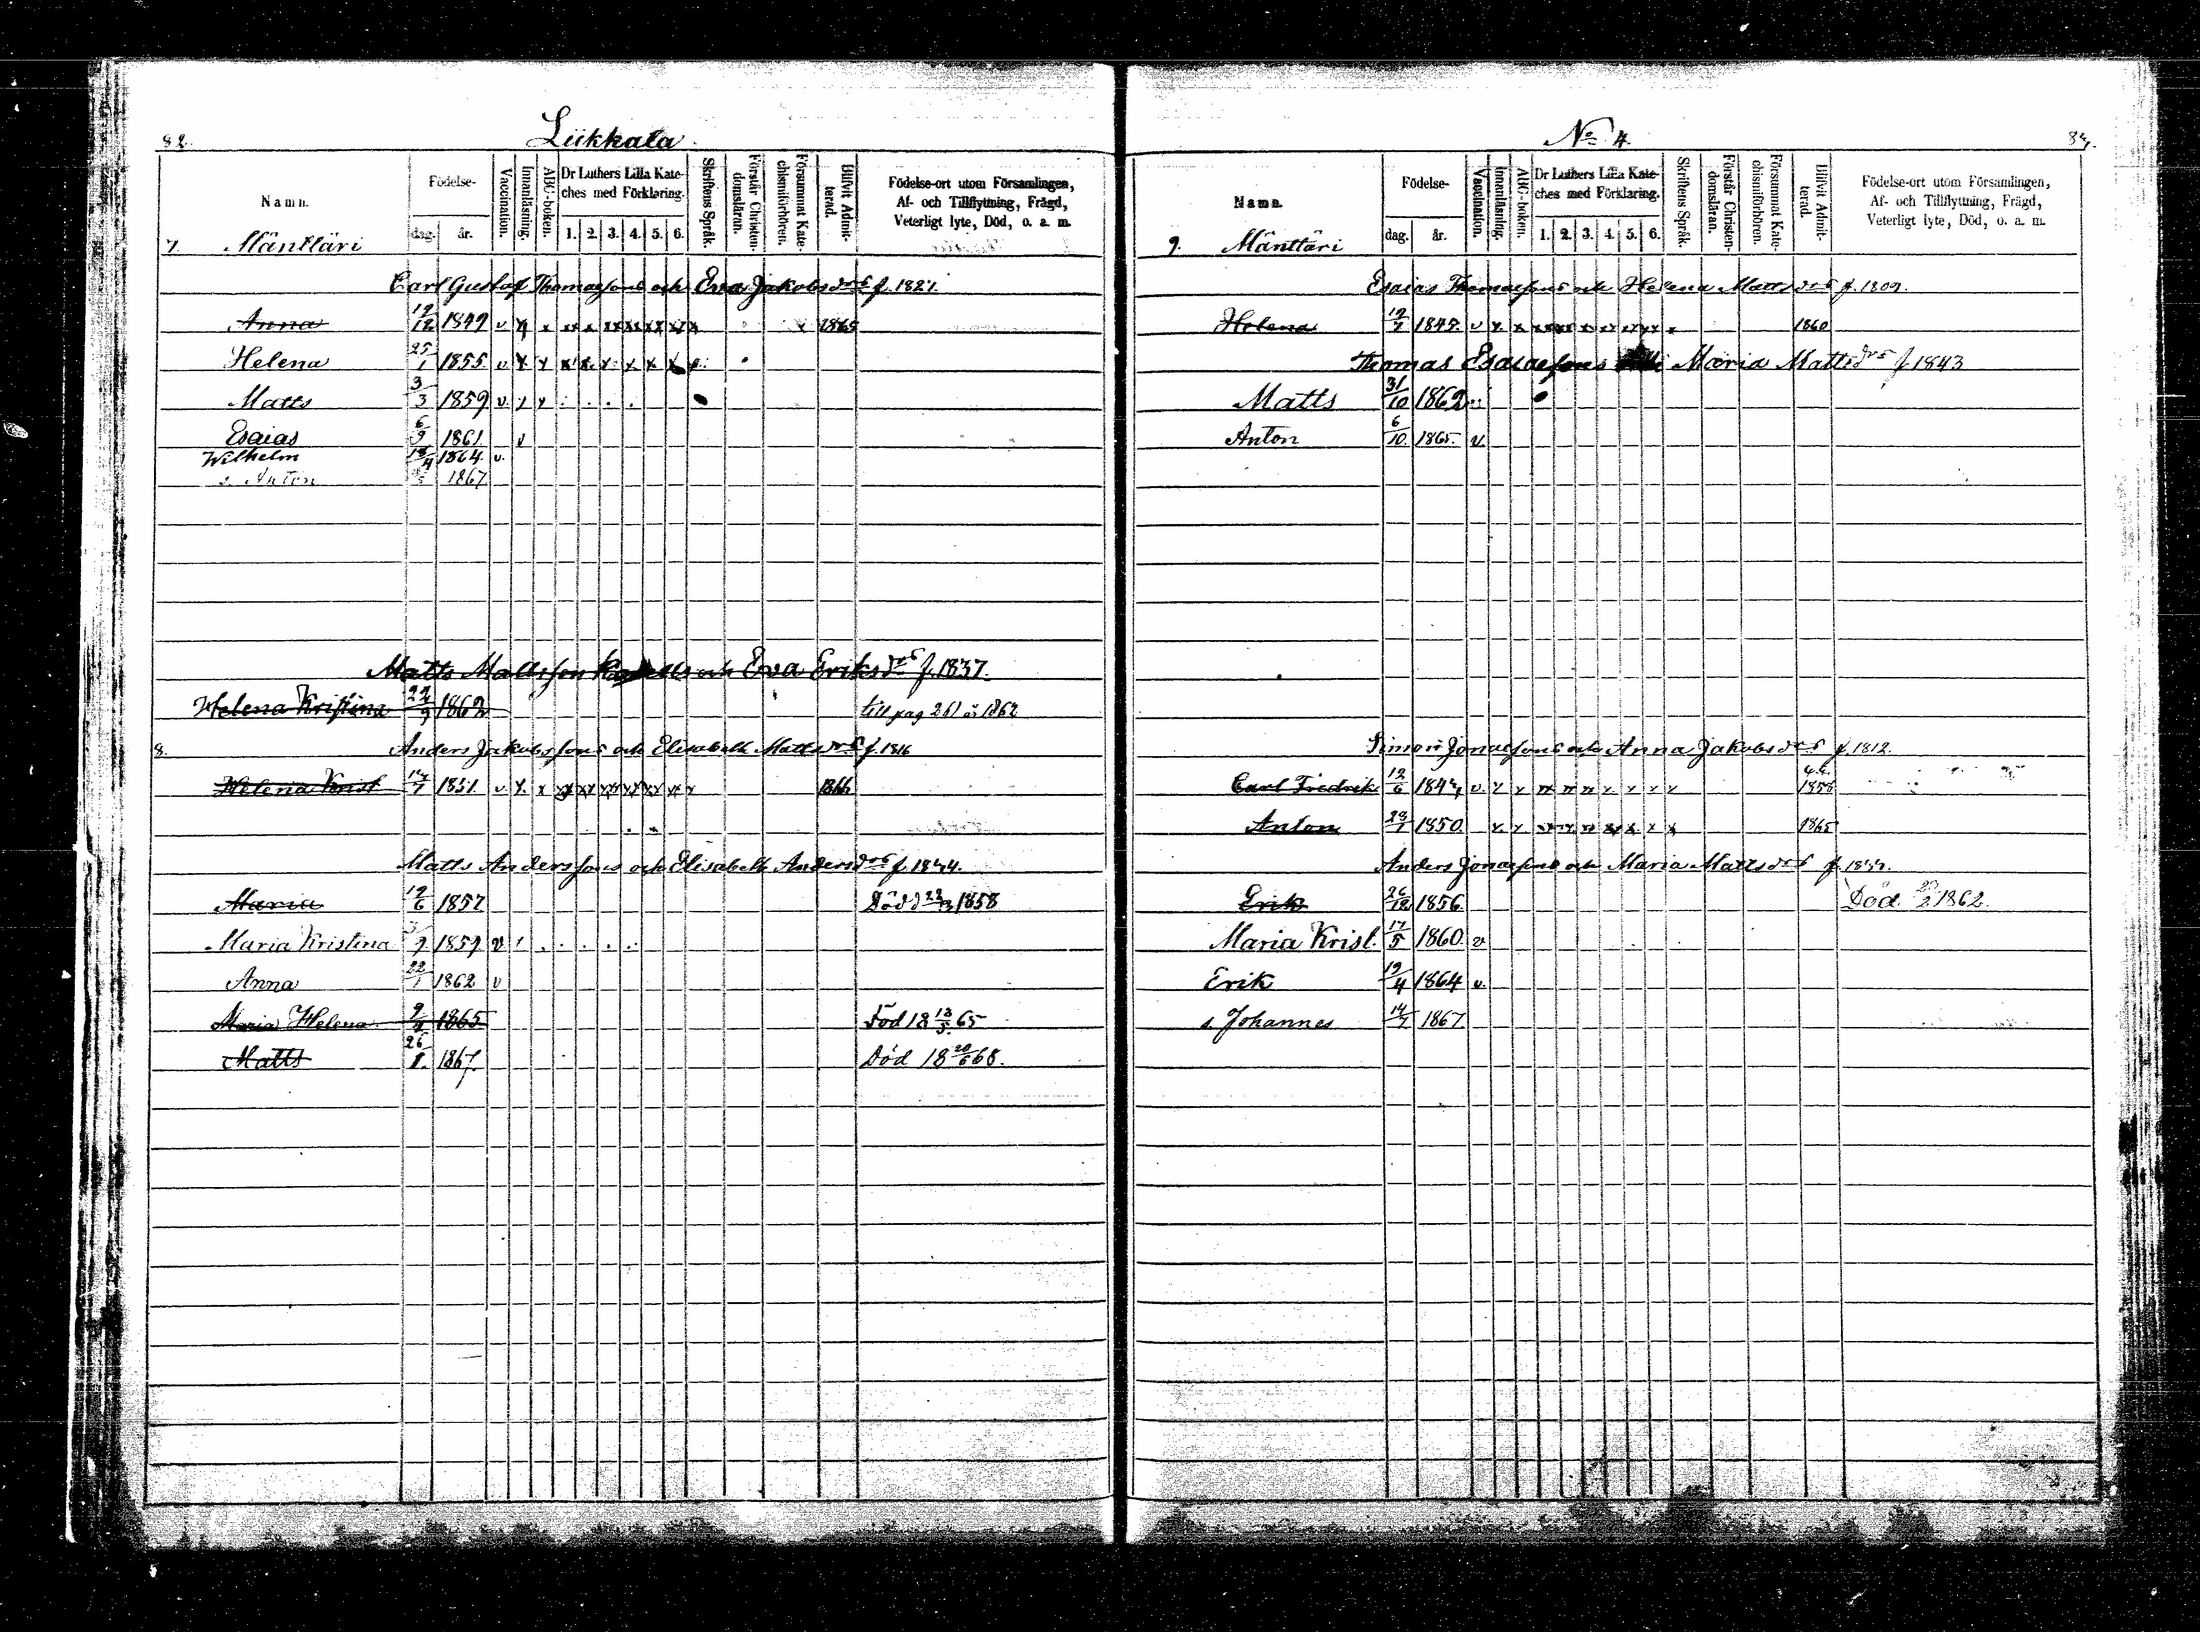 82.
Liikkala
Namn.
Födelse-
dag.
år.
Vaccination.
Innanläsning.
ABC-boken.
Dr Luthers Lilla Kate-
ches med Förklaring.
1. 2. 3. 4. 5. 6.
Skriftens Språk.
Förstår Christen-
domsläran.
Försummat Kate-
chismiförhören.
Blifvit Admit-
terad.
Födelse-ort utom Församlingen,
Af- och Tillflyttning, Frägd,
Veterligt lyte, Död, o. a. m.
7. Mänttäri
Carl Gustaf Thomassons och Eva Jakobsdrs f. 1827.
Anna 19/12 1849 v x x xx x xx xx xx xx x x 1865
Helena 25/1 1855. v x x x x x x x x
Matts 3/3 1859 v. x x
Esaias 6/9 1861 v
Wilhelm 18/4 1864 v.
s. Anton 1867
Matts Mattsson och Eva Eriksdrs f. 1837.
Helena Kristina 22/9 1862 till pag 261 år 1862
8. Anders Jakobssons och Elisabeth Mattsdrs f. 1816
Helena Krist 1851. v x. x xx xx xx xx xx xx x 1866
Matts Anderssons och Elisabeth Andersdrs f. 1834.
Maria 19/6 1857 Död 1858
Maria Kristina 1859 v
Anna 22/1 1862 v
Maria Helena 1865 Död 18 13/5 65
Matts 26/8. 1867. Död 18 20/6 68.
No 4.
83.
Namn.
Födelse-
dag.
år.
Vaccination.
Innanläsning.
ABC-boken.
Dr Luthers Lilla Kate-
ches med Förklaring.
1. 2. 3. 4. 5. 6.
Skriftens Språk.
Förstår Christen-
domsläran.
Försummat Kate-
chismiförhören.
Blifvit Admit-
terad.
Födelse-ort utom Församlingen,
Af- och Tillflyttning, Frägd,
Veterligt lyte, Död, o. a. m.
9. Mänttäri
Esaias Thomassons och Helena Mattsdrs f. 1809.
Helena 1845. v x x xx xx xx xx xx xx x 1860
Thomas Esaiassons Maria Mattsdrs f 1843
Matts 31/10 1862
Anton 6/10. 1865. v.
Simon Jonassons och Anna Jakobsdrs f. 1812.
Carl Fredrik 12/6 v. x x xx xx xx x x x x 1858
Anton 1850. x. x xx xx xx xx x x x 1865
Anders Jonassons och Maria Mattsdrs
Erik 26/12 1856. Död 1862.
Maria Krist. 17/5 1860. v
Erik 19/4 1864 v.
s. Johannes 14/7 1867